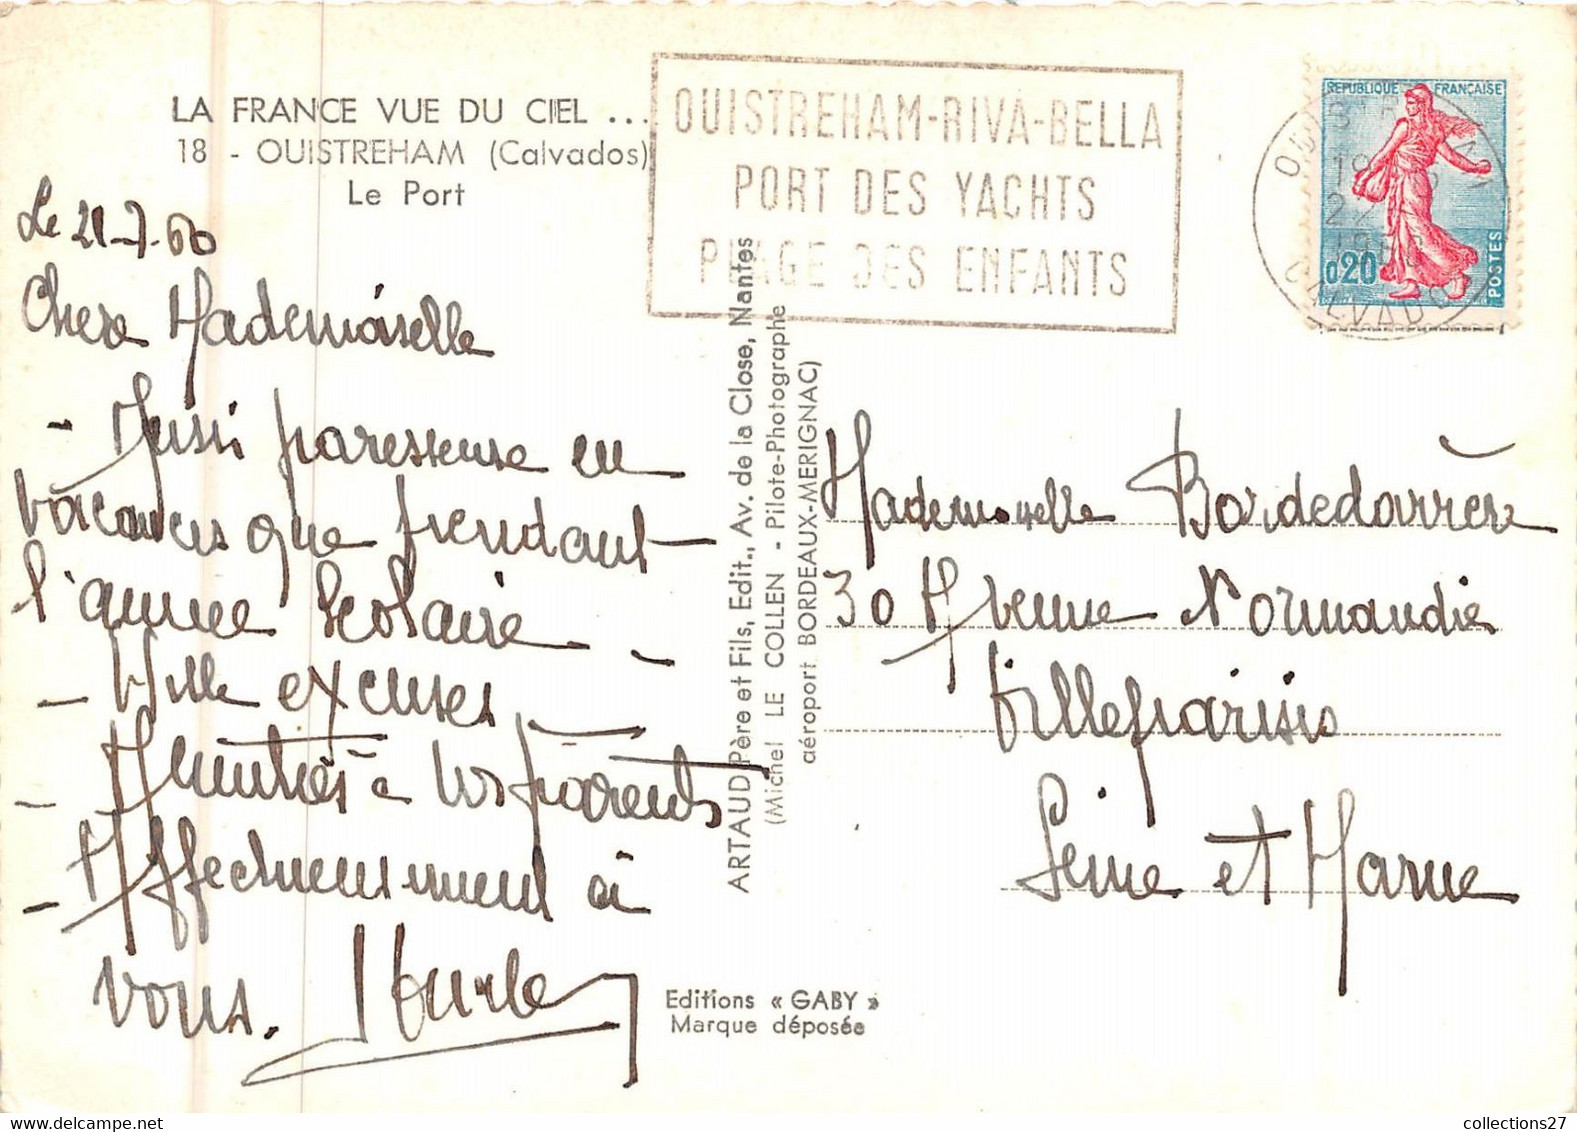 LA FRANCE VUE DU CIEL ...
18 - OUISTREHAM (Calvados)
Le Port
OUISTREHAM-RIVA-BELLA
PORT DES YACHTS
PLAGE DES ENFANTS
REPUBLIQUE FRANÇAISE
0,20
POSTES
CALVADOS
Le 21-7-60
Chere Mademoiselle
- Aussi paresseuse en
vacances que pendant
l'annee scolaire -
- Mille excuses
- Amitiés a vos parents
- Affectueusement à
vous.
ARTAUD Père et Fils, Edit., Av. de la Close, Nantes
(Michel LE COLLEN - Pilote-Photographe
aéroport BORDEAUX-MERIGNAC)
Mademoiselle Bordedarrère
30 Avenue Normandie
Villeparisis
Seine et Marne
Editions « GABY »
Marque déposée
collections27